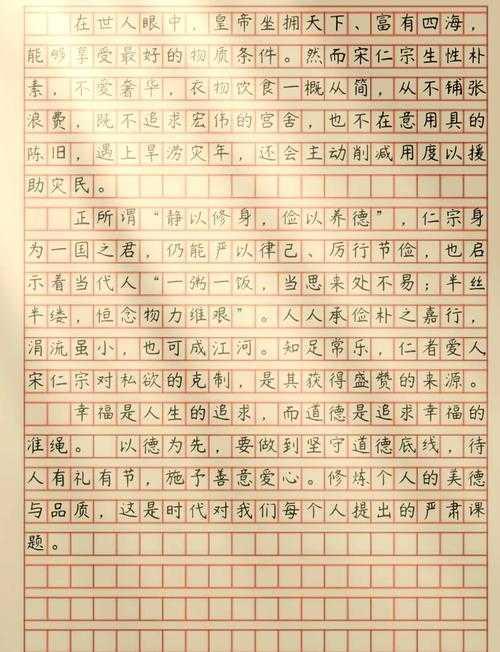 在世人眼中，皇帝坐拥天下、富有四海，
能够享受最好的物质条件。然而宋仁宗生性朴
素，不爱奢华，衣物饮食一概从简，从不铺张
浪费，既不追求宏伟的宫舍，也不在意用具的
陈旧，遇上旱涝灾年，还会主动削减用度以援
助灾民。
正所谓“静以修身，俭以养德”，仁宗身
为一国之君，仍能严以律己、厉行节俭，也启
示着当代人“一粥一饭，当思来处不易；半丝
半缕，恒念物力维艰”。人人承俭朴之嘉行，
涓流虽小，也可成江河。知足常乐，仁者爱人
宋仁宗对私欲的克制，是其获得盛赞的来源。
幸福是人生的追求，而道德是追求幸福的
准绳。以德为先，要做到坚守道德底线，待
人有礼有节，施予善意爱心。修炼个人的美德
与品质，这是时代对我们每个人提出的严肃课
题。